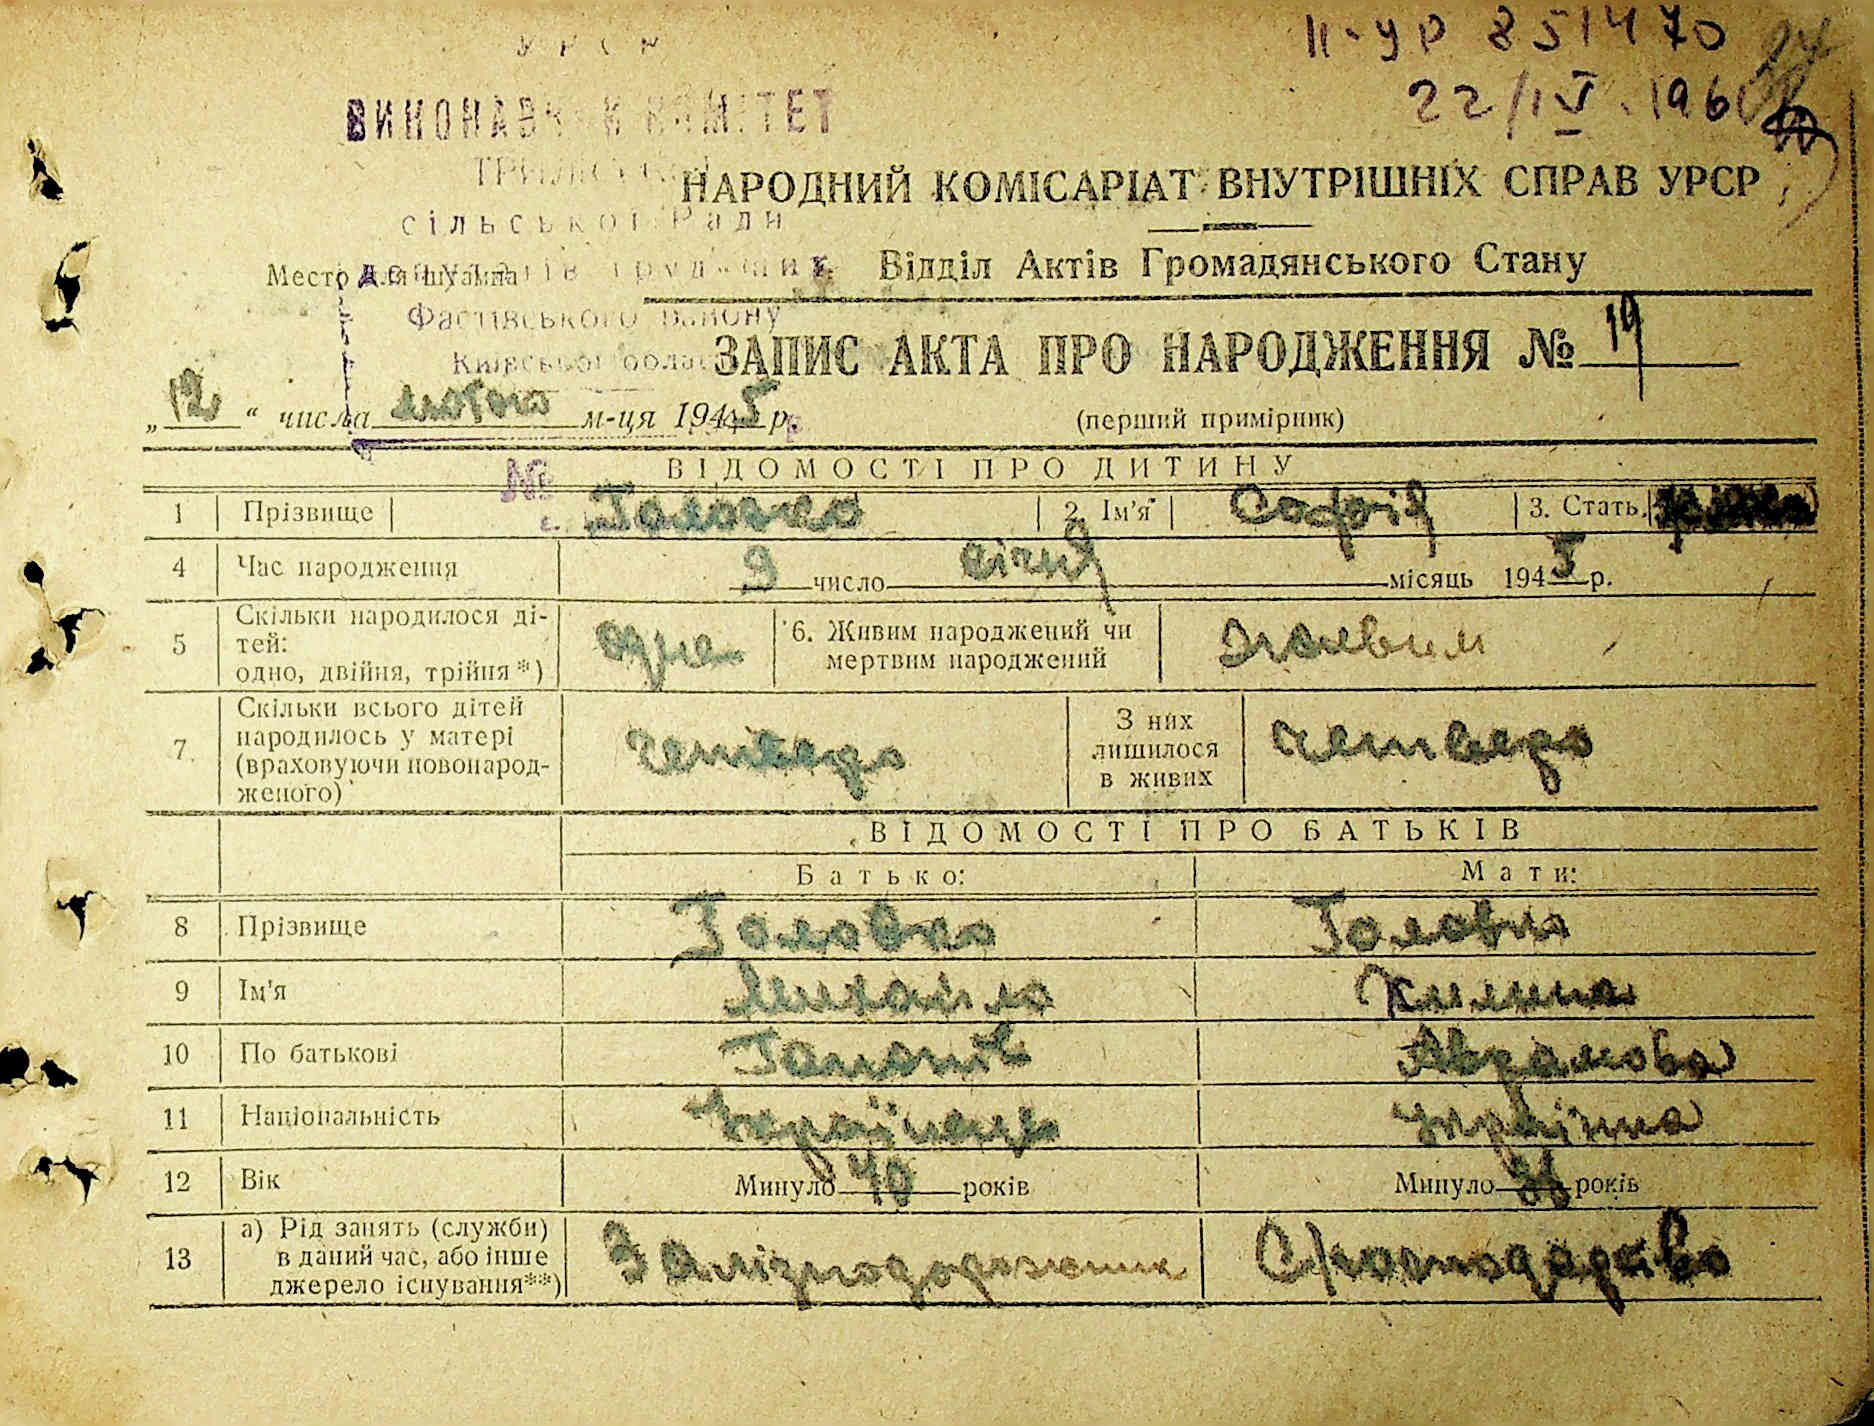 УРСР
ІІ-УР 851470
22/IV.196
ВИКОНАВЧИЙ КОМІТЕТ
НАРОДНИЙ КОМІСАРІАТ ВНУТРІШНІХ СПРАВ УРСР
сільської Ради
Место для штампа
депутатів трудящих
Відділ Актів Громадянського Стану
Фастівського району
Київської област
ЗАПИС АКТА ПРО НАРОДЖЕННЯ № 19
„12“ числа лютого м-ця 1945 р.
(перший примірник)
№
ВІДОМОСТІ ПРО ДИТИНУ
1 Прізвище Головко 2. Ім'я Софія 3. Стать.
4 Час народження 9 число січня місяць 1945 р.
5 Скільки народилося ді-
тей:
одно, двійня, трійня*) одне
6. Живим народжений чи
мертвим народжений живим
7 Скільки всього дітей
народилось у матері
(враховуючи новонарод-
женого) четверо
З них
лишилося
в живих четверо
ВІДОМОСТІ ПРО БАТЬКІВ
Батько: Мати:
8 Прізвище Головко Головко
9 Ім'я Михайло Килина
10 По батькові Аврамова
11 Національність Українець Українка
12 Вік Минуло 40 років Минуло років
13 а) Рід занять (служби)
в даний час, або інше
джерело існування**)